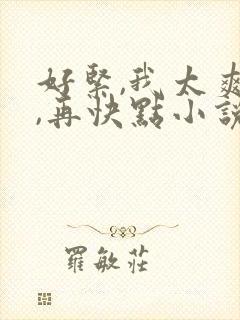 好緊,我太爽
,再快點小說
羅敏莊